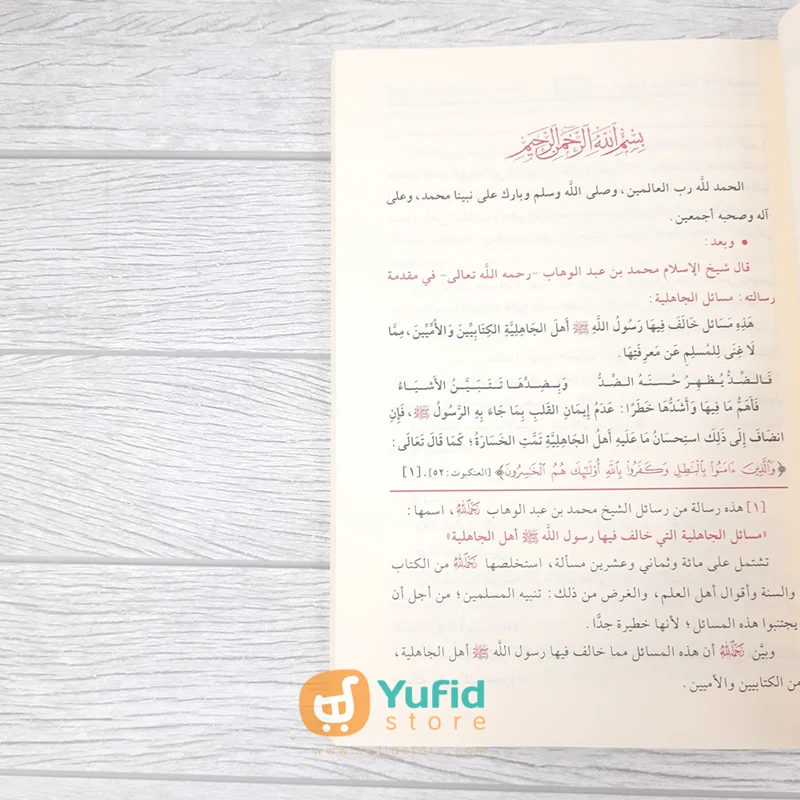 بِسْمِ اللَّهِ الرَّحْمَٰنِ الرَّحِيمِ
الحمد للَّه رب العالمين، وصلى اللَّه وسلم وبارك على نبينا محمد، وعلى
آله وصحبه أجمعين.
• وبعد:
قال شيخ الإسلام محمد بن عبد الوهاب -رحمه اللَّه تعالى- في مقدمة
رسالته: مسائل الجاهلية:
هَذِهِ مَسَائل خَالَفَ فِيهَا رَسُولُ اللَّهِ ﷺ أَهلَ الجَاهِلِيَّةِ الكِتَابِيِّينَ وَالأُمِّيِّينَ، مِمَّا
لَا غِنَى لِلمُسلِمِ عَن مَعرِفَتِهَا.
فَـالـضِّـدُّ يُـظْـهِـرُ حُـسـنَـهُ الـضِّـدُّ وَبِـضِـدِّهَـا تَـتَـبَـيَّـنُ الأَشـيَـاءُ
فَأَهَمُّ مَا فِيهَا وَأَشَدُّهَا خَطَرًا: عَدَمُ إِيمَانِ القَلبِ بِمَا جَاءَ بِهِ الرَّسُولُ ﷺ، فَإِنِ
انضَافَ إِلَى ذَلِكَ استِحسَانُ مَا عَلَيهِ أَهلُ الجَاهِلِيَّةِ تَمَّتِ الخَسَارَةُ؛ كَمَا قَالَ تَعَالَى:
﴿وَالَّذِينَ ءَامَنُوا بِالْبَٰطِلِ وَكَفَرُوا بِاللَّهِ أُوْلَٰٓئِكَ هُمُ الْخَٰسِرُونَ﴾ [العنكبوت: ٥٢]. [١]
[١] هذه رسالة من رسائل الشيخ محمد بن عبد الوهاب رَحِمَهُ اللَّهُ، اسمها:
«مسائل الجاهلية التي خالف فيها رسول اللَّه ﷺ أهل الجاهلية»
تشتمل على مائة وثماني وعشرين مسألة، استخلصها رَحِمَهُ اللَّهُ من الكتاب
والسنة وأقوال أهل العلم، والغرض من ذلك: تنبيه المسلمين؛ من أجل أن
يجتنبوا هذه المسائل؛ لأنها خطيرة جدًّا.
وبيَّن رَحِمَهُ اللَّهُ أن هذه المسائل مما خالف فيها رسول اللَّه ﷺ أهل الجاهلية،
من الكتابيين والأميين.
Yufid
store
www.yufidstore.com